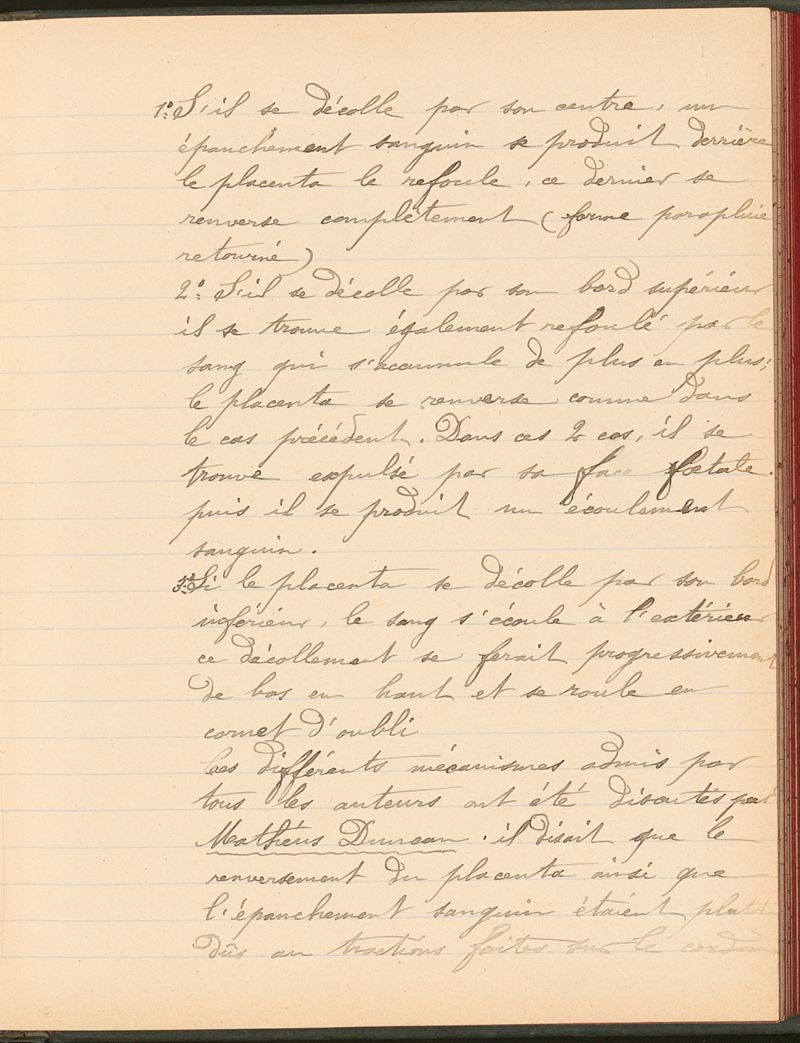 1º S'il se décolle par son centre, un
épanchement sanguin se produit derrière
le placenta le refoule, ce dernier se
renverse complètement (forme parapluie
retourné)
2º S'il se décolle par son bord supérieur
il se trouve également refoulé par le
sang qui s'accumule de plus en plus;
le placenta se renverse comme dans
le cas précédent. Dans ces 2 cas, il se
trouve expulsé par sa face fœtale.
puis il se produit un écoulement
sanguin.
3º Si le placenta se décolle par son bord
inférieur, le sang s'écoule à l'extérieur
ce décollement se ferait progressivement
de bas en haut et se roule en
cornet d'oubli
Ces différents mécanismes admis par
tous les auteurs ont été discutés par
Mathéus Duncan. il disait que le
renversement du placenta ainsi que
l'épanchement sanguin étaient plutôt
dûs au tractions faites sur le cordon